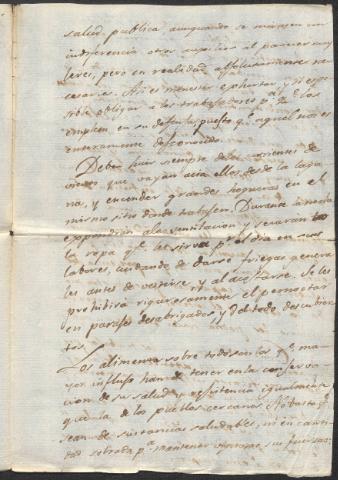 salud publica aunquando se miren con
indiferencia otros auxilios al parecer muy
leves, pero en realidad absolutamente ne
cesarios. Asi es menester exhortar, y si es po
sible obligar a los trabajadores pª qe los
empleen en su defensa, puesto qe aquel no es
enteramente desconocido.
Deben huir siempre de las corrientes de
vientos que vayan acia ellos desde la lagu
na, y encender grandes hogueras en el
mismo sitio donde trabajen. Durante la noche
expondrán a la ventilacion y secarán
la ropa qe les sirva pr el dia en sus
labores, cuidando de darse friegas genera
les antes de vestirse, y al acostarse. Se les
prohibirá rigurosamente el pernoctar
en parajes desabrigados y del todo descubier
tos.
Los alimentos sobre todo son los qe ma
yor influjo han de tener en la conserva
cion de su salud y resistencia igualmente
que la de los pueblos cercanos. No basta qe
sean de sustancias saludables, ni en canti
dad sobrada pª mantener sus fuerzas